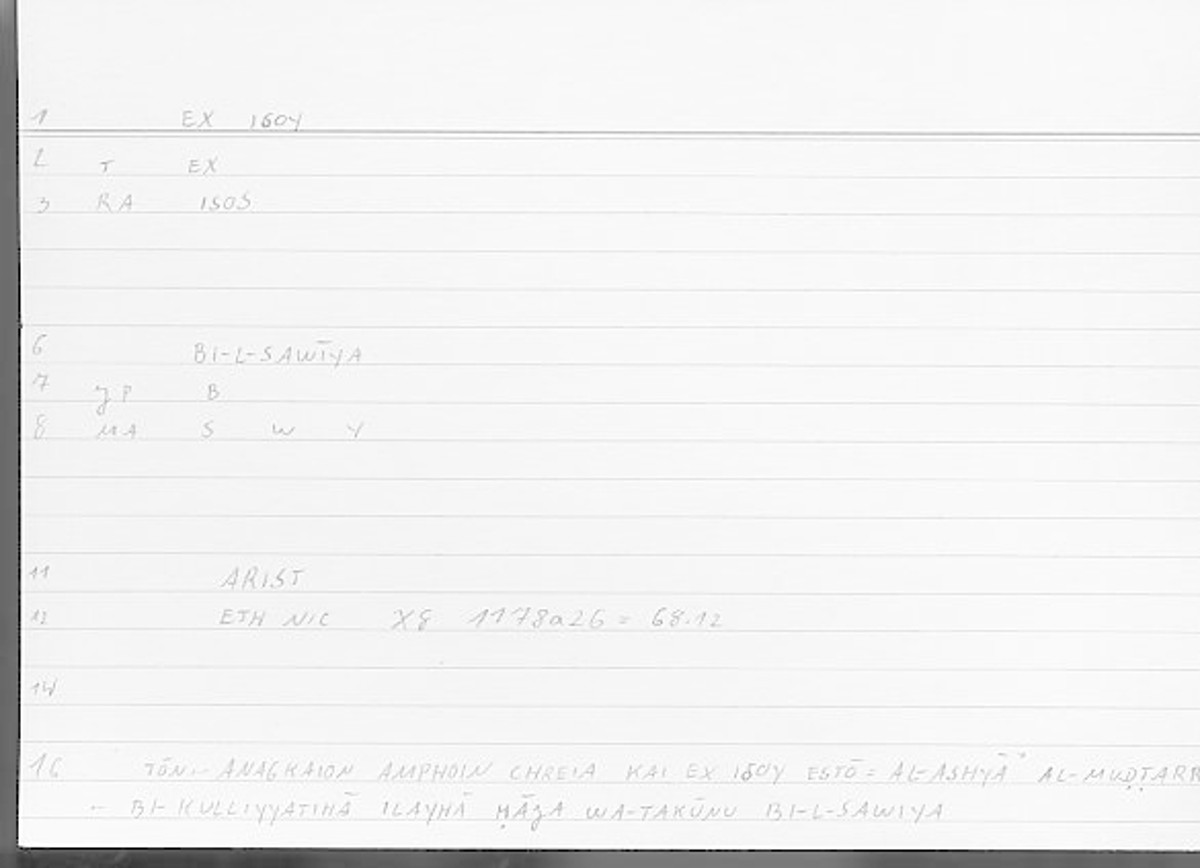 1 EX ISOY
2 T EX
3 RA ISOS
6 BI-L-SAWĪYA
7 JP B
8 MA S W Y
11 ARIST
12 ETH NIC X8 1178a26 = 68.12
14
16 TŌN:- ANAGKAION AMPHOIN CHREIA KAI EX ISOY ESTŌ = AL-ASHYĀʾ AL-MUḌṬARR
- BI-KULLIYYATIHĀ ILAYHĀ ḤĀJA WA-TAKŪNU BI-L-SAWIYA